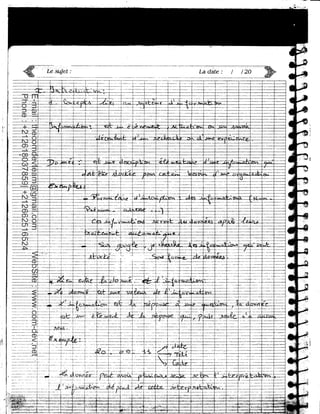 Le sujet :
La date : / / 20
I - Introduction :
1 - Concepts liés au système d'information
Information : est un événement, situation ou un savoir
découlant d'une recherche ou d'une expérience.
Donnée : est une description élémentaire d'une information qui
doit être stockée pour certain besoin d'une organisation
Exemples :
- Formulaire d'inscription : des informations (Nom,
Prénom, adresse ...)
Ces informations seront des données après leurs
traitement automatique
- Sur google, je cherche les informations qui sont
stockés sous forme de données.
* Lien entre la donnée et d'information :
- La donnée est une valeur de l'information
- L'information est la réponse à une question, la donnée
est un élément de la réponse qui, prise seule n'a aucun
sens.
Exemple :
20.00.11
date
Tél
Code
- La donnée peut avoir plusieurs sens selon l'interprétation,
l'information dépend de cette interprétation.
E-mail : thecomdevteam@gmail.com
WebSite : www.com-dev.net